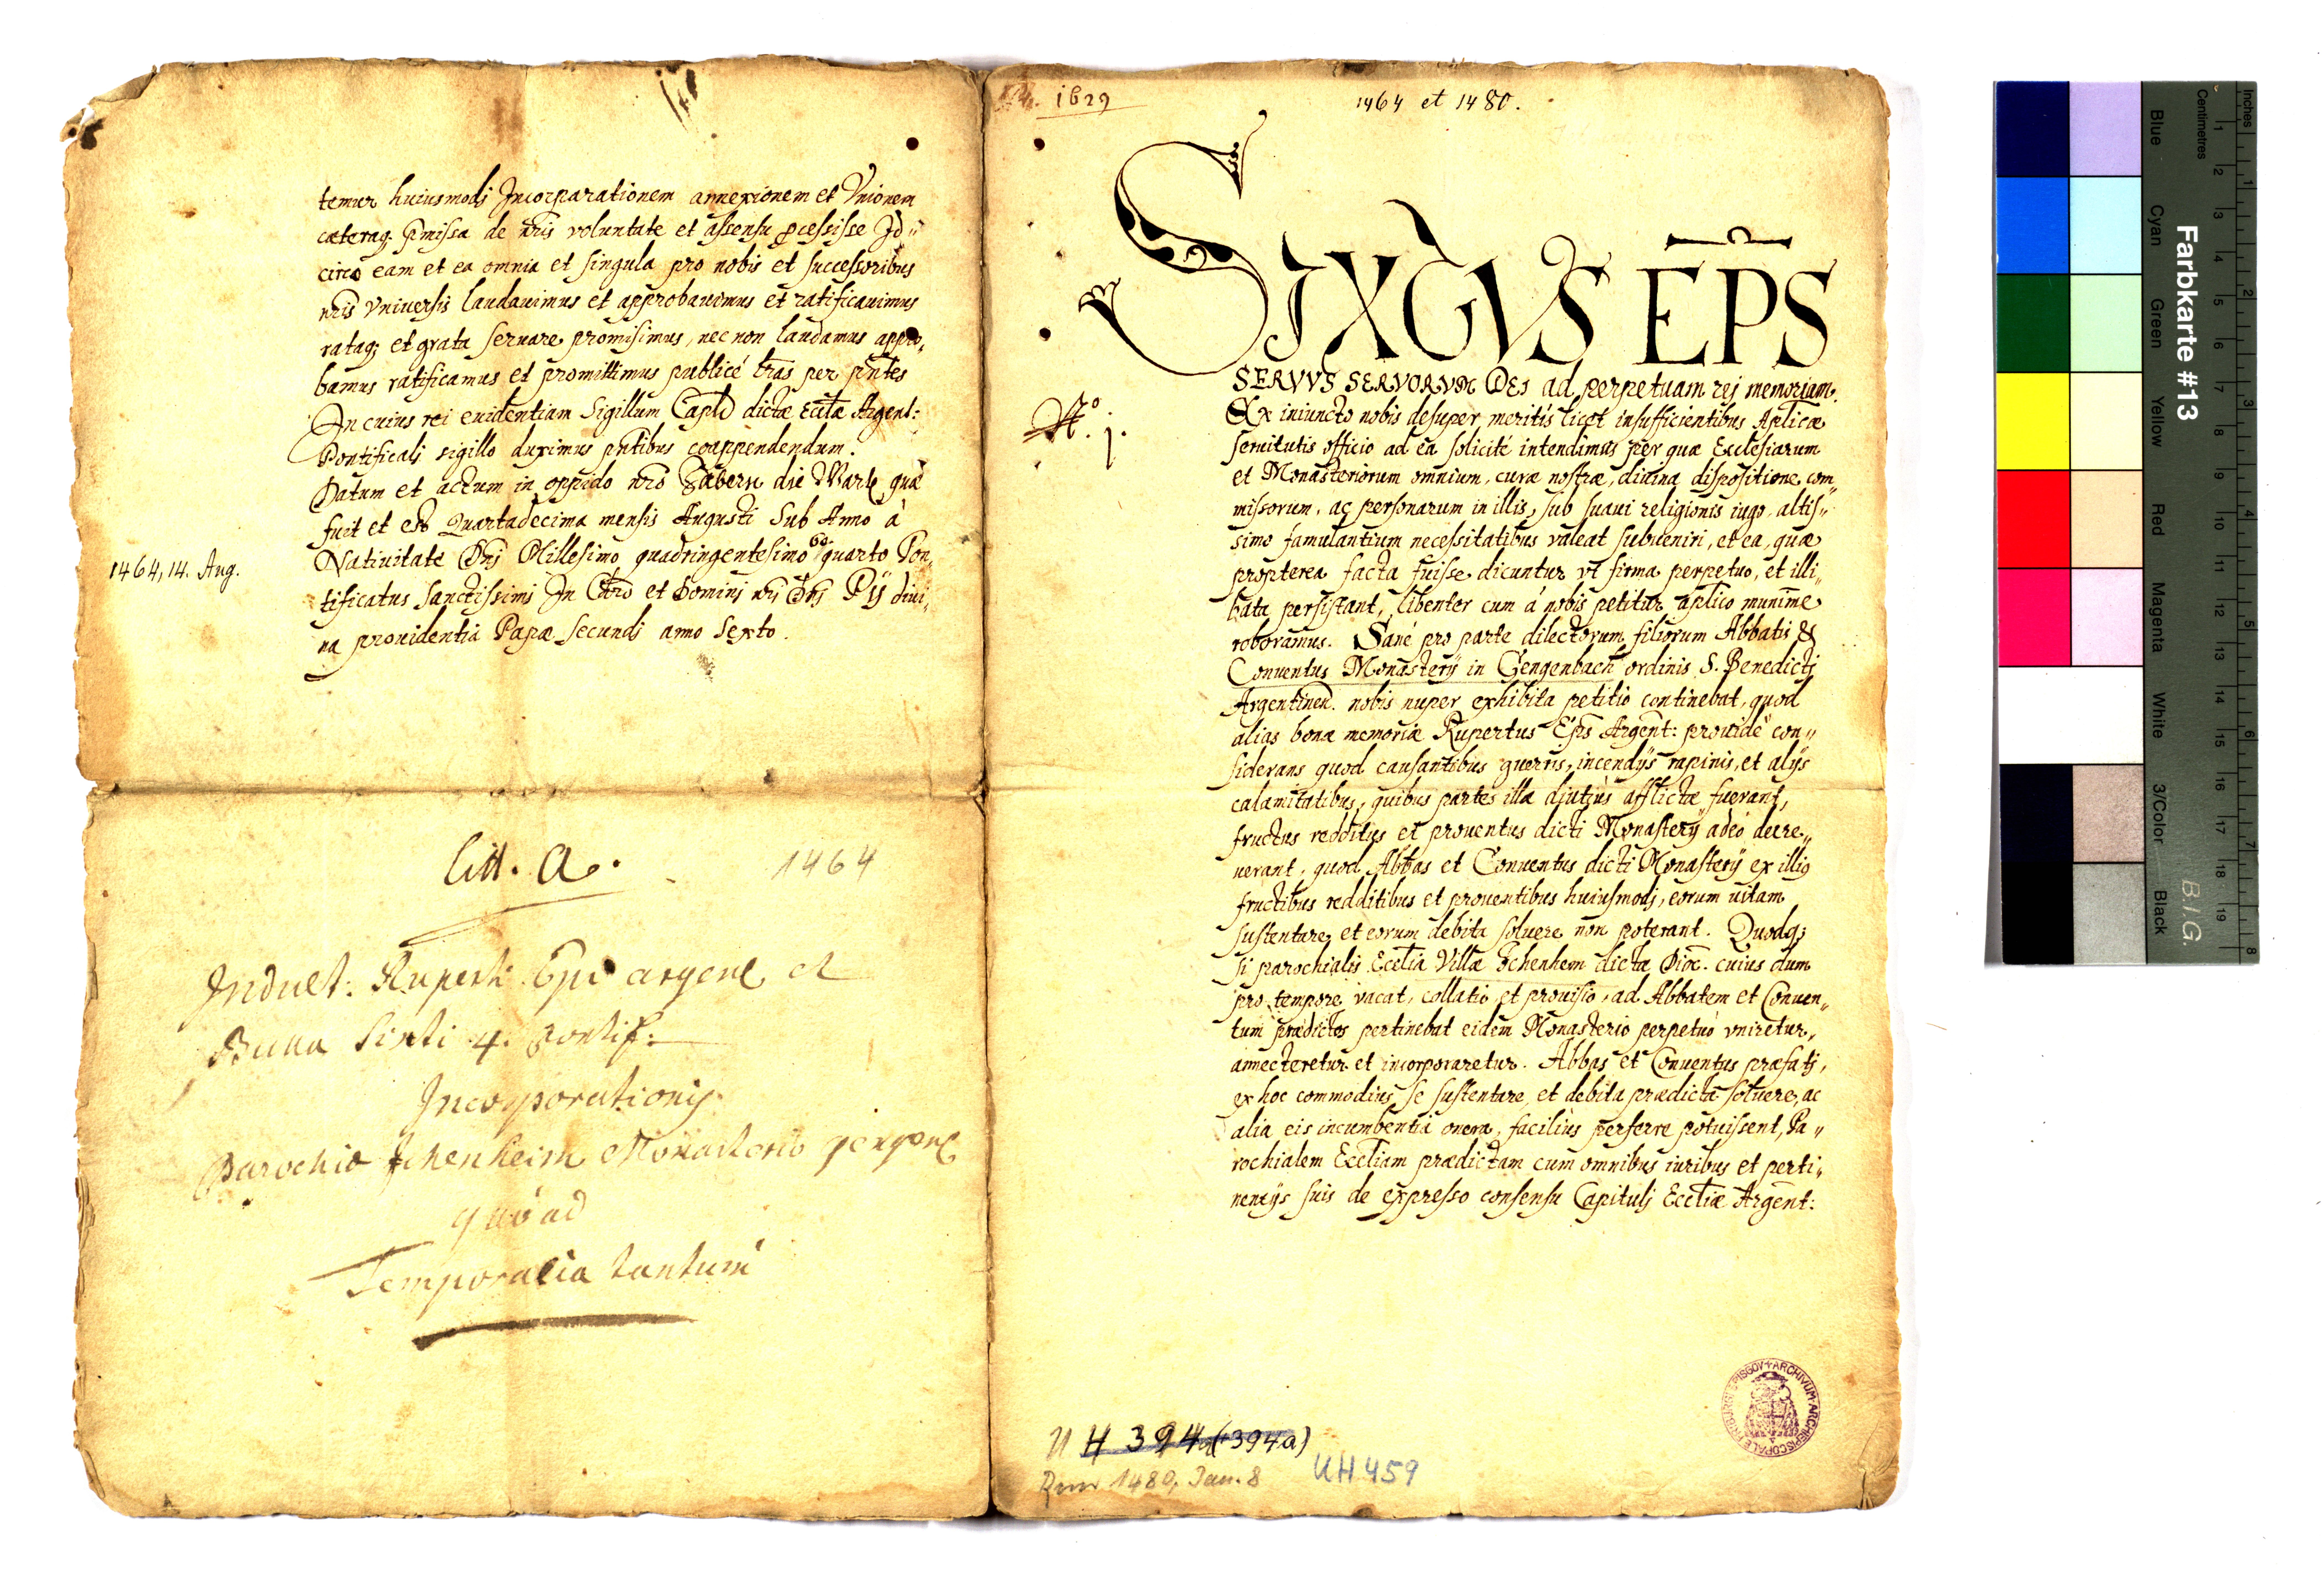 temur huiusmodi Incorparationem annexionem et Vnionem
cæteraq; p̄missa de nr̄is voluntate et assensu p̱cessisse Id„
circo eam et ea omnia et singula pro nobis et successoribus
nr̄is vniuersis laudauimus et approbauimus et ratificauimus
rataq; et grata seruare promisimus, nec non laudamus appro„
bamus ratificamus et promittimus publicé l̄ras per pn̄tes
In cuius rei euidentiam Sigillum Capl̄i dictæ Eccl̄æ Argent:
Pontificali sigillo duximus pn̄tibus coappendendum.
Datum et actum in oppido nr̄o Zabern die Marti qua
fuit et est Quartadecima mensis Augusti Sub Anno à
Natiuitate Dn̄i Millesimo quadringentesimo 60 quarto Pon„
tificatus Sanctissimi In Chr̄o et Domini nr̄i Dn̄i Pij diui„
na prouidentia Papæ secundi anno Sexto.
1464, 14. Aug.
Litt. A.
1464
Indult: Ruperti Epi argent et
Bulla Sixti 4. Pontif:
Incorporationis
Parochiæ Ichenheim Monasterio gengenb
quò ad
Temporalia tantum
1629
1464 et 1480.
SIXTVS EP̄S
SERVVS SERVORVM DEI ad perpetuam rei memoriam.
N.º 1.
Ex iniuncto nobis desuper, meritis licet insufficientibus Aplicæ
seruitutis officio ad ea solicité intendimus per quæ Ecclesiarum
et Monasteriorum omnium, curæ nostræ, diuina dispositione com„
missorum, ac personarum in illis, sub suaui religionis iugo, altis„
simo famulantium necessitatibus valeat subueniri, et ea, quæ
propterea facta fuisse dicuntur vt firma perpetuo, et illi„
bata persistant, libenter cum á nobis petitur aplico munim̄e
roboramus. Sané pro parte dilectorum filiorum Abbatis &
Conuentus Monasterij in Gengenbach ordinis S. Benedicti
Argentinen. nobis nuper exhibita petitio continebat, quod
alias bonæ memoriæ Rupertus Ep̄s Argent: prouidè con„
siderans quod causantibus guerris, incendijs rapinis, et alijs
calamitatibus, quibus partes illæ diutius afflictæ fuerant,
fructus redditus et prouentus dicti Monasterij adeò decre„
uerant, quod Abbas et Conuentus dicti Monasterij ex illis
fructibus redditibus et prouentibus huiusmodi, eorum uitam
sustentare, et eorum debita soluere non poterant. Quodq;
si parochialis Eccl̄ia Villæ Ichenhem dicta Dioc. cuius dum
pro tempore vacat, collatio et prouisio, ad Abbatem et Conuen„
tum prædictos pertinebat eidem Monasterio perpetuò vniretur,
annecteretur et incorporaretur. Abbas et Conuentus præfati,
ex hoc commodius se sustentare et debita prædicta soluere, ac
alia eis incumbentia onera, faciliùs perferre potuissent, Pa„
rochialem Eccl̄iam prædictam cum omnibus iuribus et perti„
nentijs suis de expresso consensu Capituli Eccl̄iæ Argent:
U H 394 (394a)
Rom 1480, Jan. 8
UH 459
ARCHIVUM ARCHIEPISCOPALE FRIBURG
Farbkarte #13
B.I.G.
Inches
Centimetres
1 2 3 4 5 6 7 8
1 2 3 4 5 6 7 8 9 10 11 12 13 14 15 16 17 18 19
Blue
Cyan
Green
Yellow
Red
Magenta
White
3/Color
Black